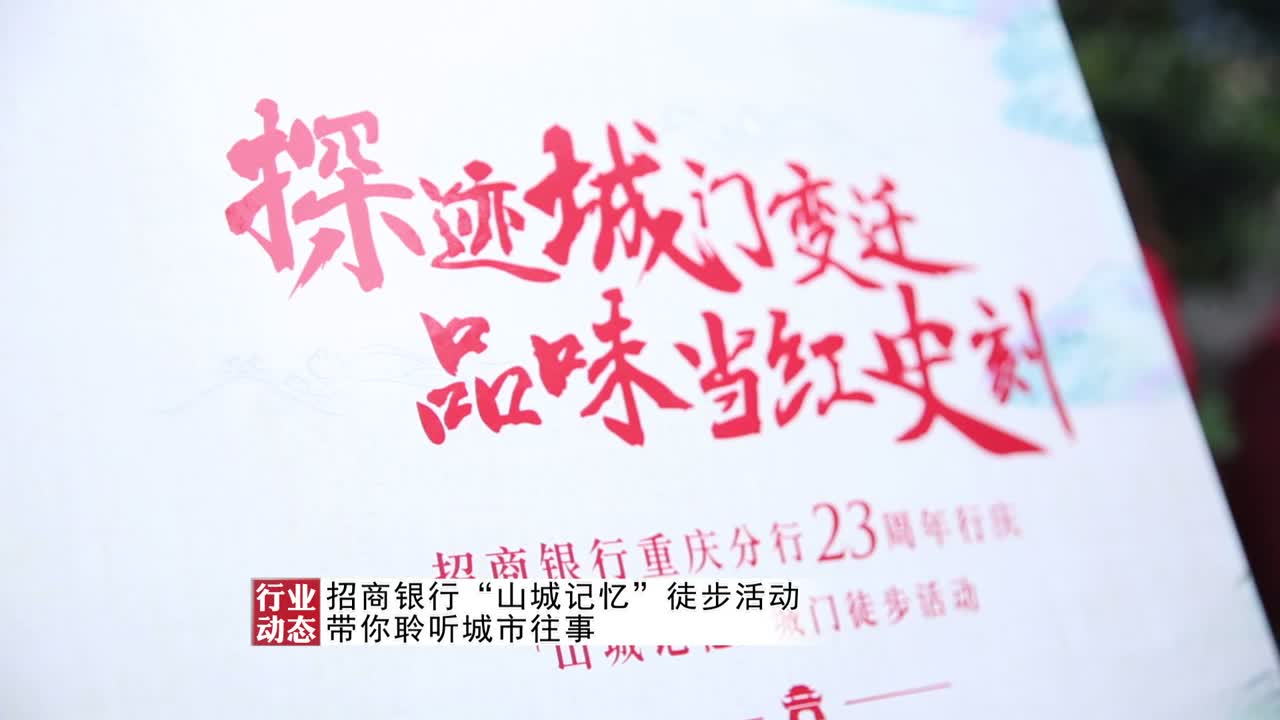 探迹城门变迁
品味当红史刻
招商银行重庆分行23周年行庆
城门徒步活动
行业动态
招商银行“山城记忆”徒步活动
带你聆听城市往事